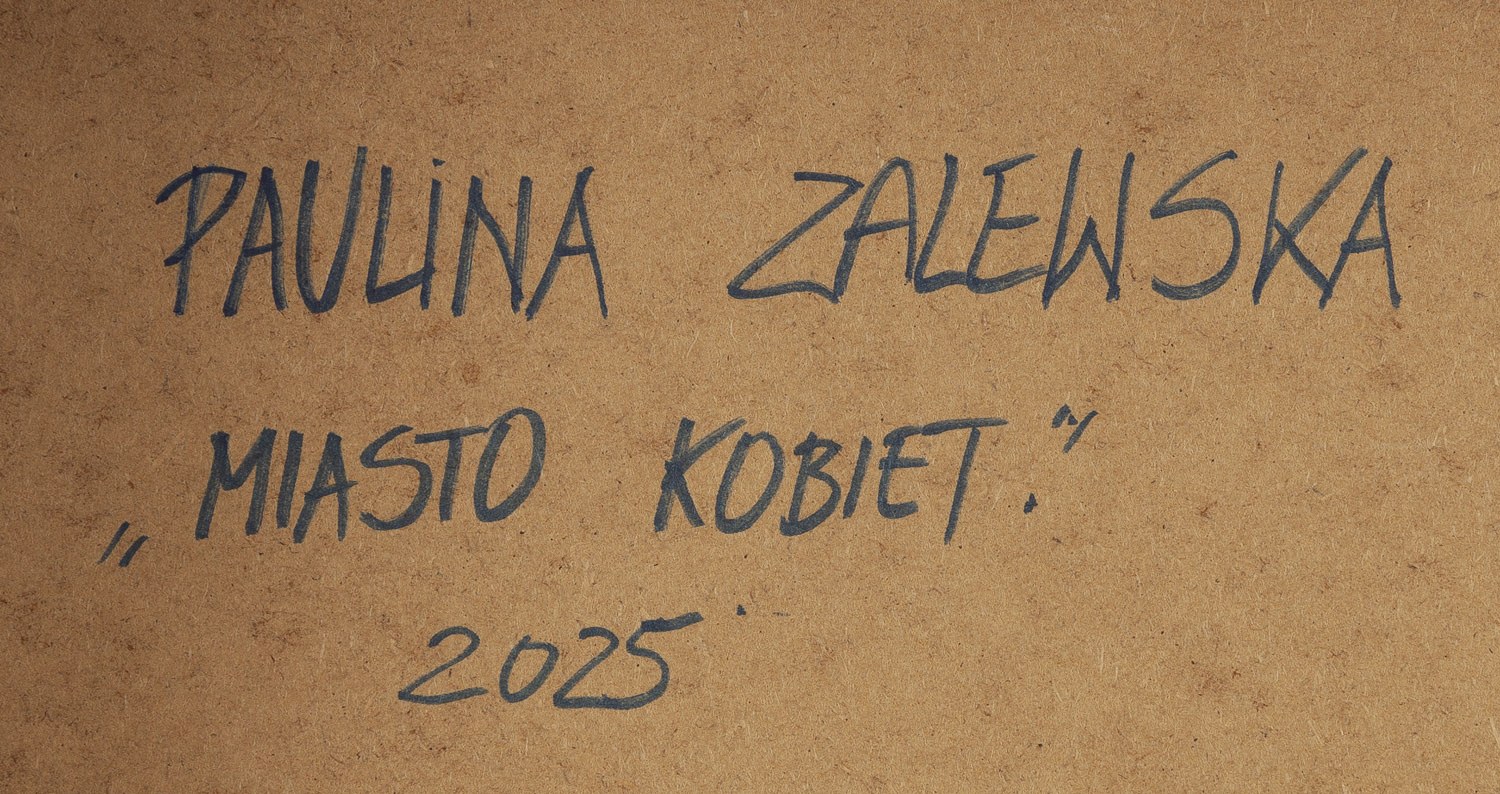 PAULiNA ZALEWSKA
„MIASTO KOBIET.”
2025